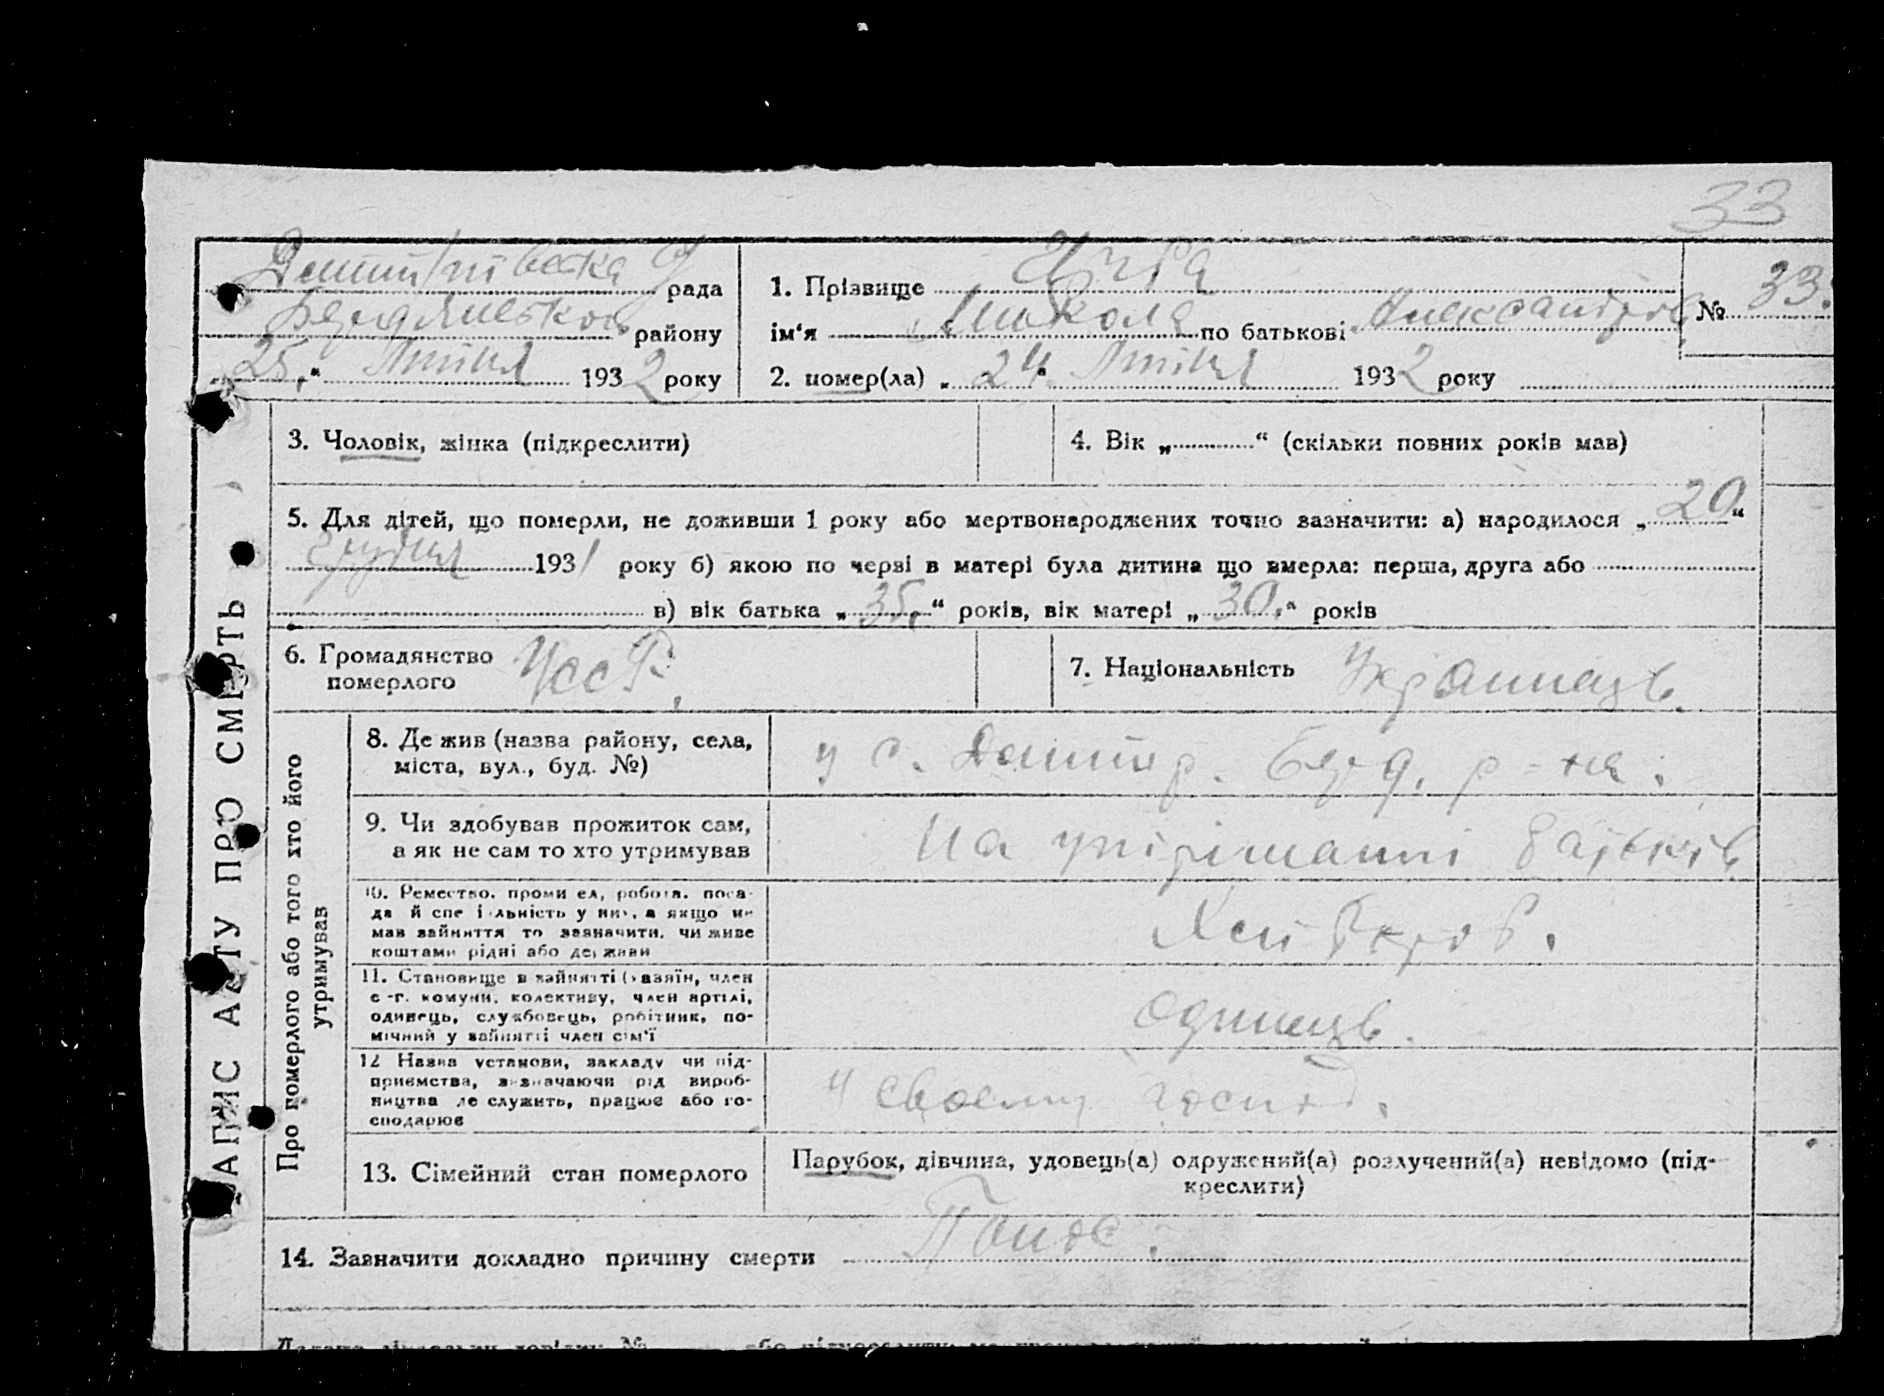 33
рада
Бердянськог. району
25 „ Липня 1932 року
1. Прізвище
ім'я Микола по батькові Александров.
№ 33.
2. помер(ла) „ 24 “ Липня 1932 року
3. Чоловік, жінка (підкреслити)
4. Вік „ “ (скільки повних років мав)
5. Для дітей, що померли, не доживши 1 року або мертвонароджених точно зазначити: а) народилося „ 20 “
грудня 1931 року б) якою по черзі в матері була дитина що вмерла: перша, друга або
в) вік батька „ 35. “ років, вік матері „ 30. “ років
6. Громадянство
померлого
УССР.
7. Національність Украинець.
8. Де жив (назва району, села,
міста, вул., буд. №)
у с. Берд. р-на.
9. Чи здобував прожиток сам,
а як не сам то хто утримував
На утриманні батьків
10. Ремество, проми ел, робота, поса-
да й спе і льність у них, а якщо не
мав зайняття то зазначити, чи живе
коштами рідні або держави
Хлібороб.
11. Становище в зайнятті (хазяїн, член
с.-г. комуни, колективу, член артілі,
одинець, службовець, робітник, по-
мічний у зайнятті член сім'ї
Одинець.
12 Назва установи, закладу чи під-
приємства, зазначаючи рід вироб-
ництва де служить, працює або го-
сподарює
У своему господ.
13. Сімейний стан померлого
Парубок, дівчина, удовець(а) одружений(а) розлучений(а) невідомо (під-
креслити)
14. Зазначити докладно причину смерти Понос.
ЗАПИС АКТУ ПРО СМЕРТЬ
Про померлого або того хто його
утримував